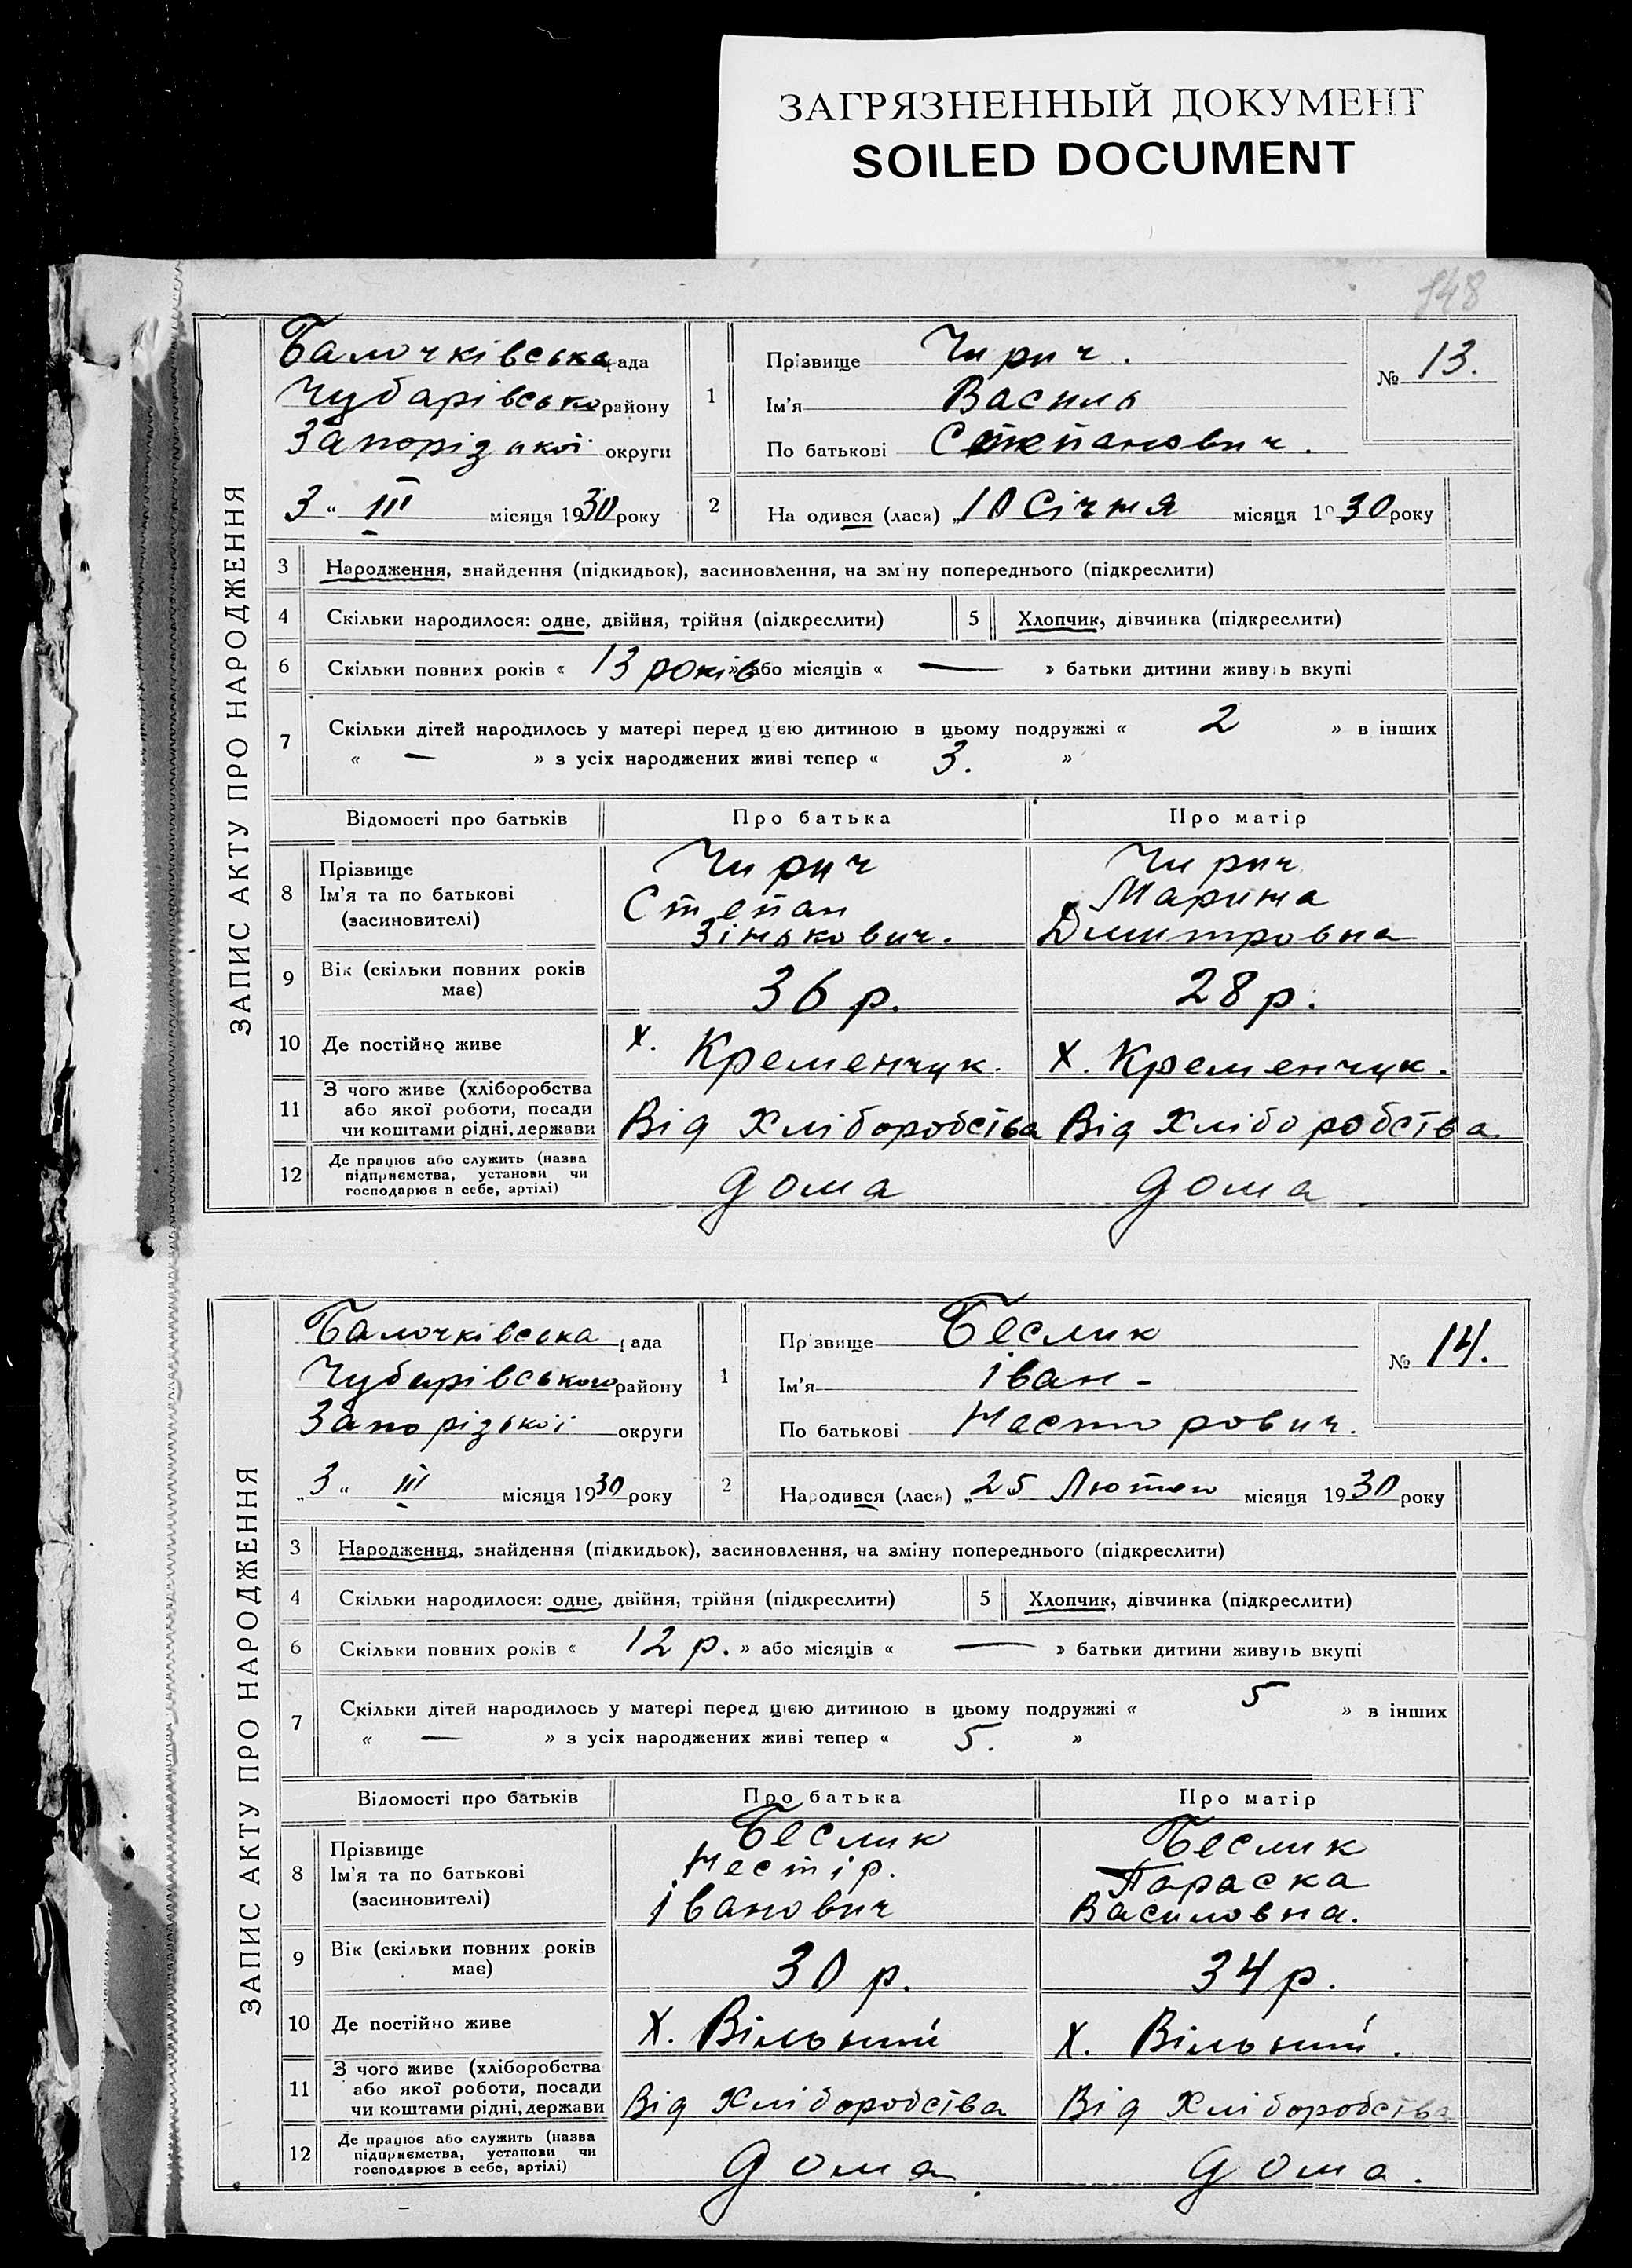 ЗАГРЯЗНЕННЫЙ ДОКУМЕНТ
SOILED DOCUMENT
148
ЗАПИС АКТУ ПРО НАРОДЖЕННЯ
Балочківська рада
Чубарівського району
Запорізької округи
3 " III місяця 1930 року
1
Прізвище Чирич.
Ім'я Василь
По батькові Степанович.
№ 13.
2 На одився (лася) „10 Січня місяця 1930 року
3 Народження, знайдення (підкидьок), засиновлення, на зміну попереднього (підкреслити)
4 Скільки народилося: одне, двійня, трійня (підкреслити) 5 Хлопчик, дівчинка (підкреслити)
6 Скільки повних років « 13 років » або місяців « — » батьки дитини живуть вкупі
7 Скільки дітей народилось у матері перед цією дитиною в цьому подружжі « 2 » в інших
« — » з усіх народжених живі тепер « 3. »
Відомості про батьків Про батька Про матір
8 Прізвище Ім'я та по батькові (засиновителі)
Чирич Степан Зінькович.
Чирич Марина Дмитровна
9 Вік (скільки повних років має) 36 р. 28 р.
10 Де постійно живе х. Кременчук. х. Кременчук.
11 З чого живе (хліборобства або якої роботи, посади чи коштами рідні, держави Від Хліборобства Від Хліборобства
12 Де працює або служить (назва підприємства, установи чи господарює в себе, артілі) дома дома
ЗАПИС АКТУ ПРО НАРОДЖЕННЯ
Балочківська рада
Чубарівського району
Запорізької округи
„3 " III місяця 1930 року
1
Прізвище Беслик
Ім'я Іван -
По батькові Несторович.
№ 14.
2 Народився (лася) „25 Лютого місяця 1930 року
3 Народження, знайдення (підкидьок), засиновлення, на зміну попереднього (підкреслити)
4 Скільки народилося: одне, двійня, трійня (підкреслити) 5 Хлопчик, дівчинка (підкреслити)
6 Скільки повних років « 12 р. » або місяців « — » батьки дитини живуть вкупі
7 Скільки дітей народилось у матері перед цією дитиною в цьому подружжі « 5 » в інших
« — » з усіх народжених живі тепер « 5. »
Відомості про батьків Про батька Про матір
8 Прізвище Ім'я та по батькові (засиновителі)
Беслик Нестір. Іванович
Беслик Параска Василовна.
9 Вік (скільки повних років має) 30 р. 34 р.
10 Де постійно живе х. Вільний х. Вільний.
11 З чого живе (хліборобства або якої роботи, посади чи коштами рідні, держави Від Хліборобства Від Хліборобства
12 Де працює або служить (назва підприємства, установи чи господарює в себе, артілі) дома дома.